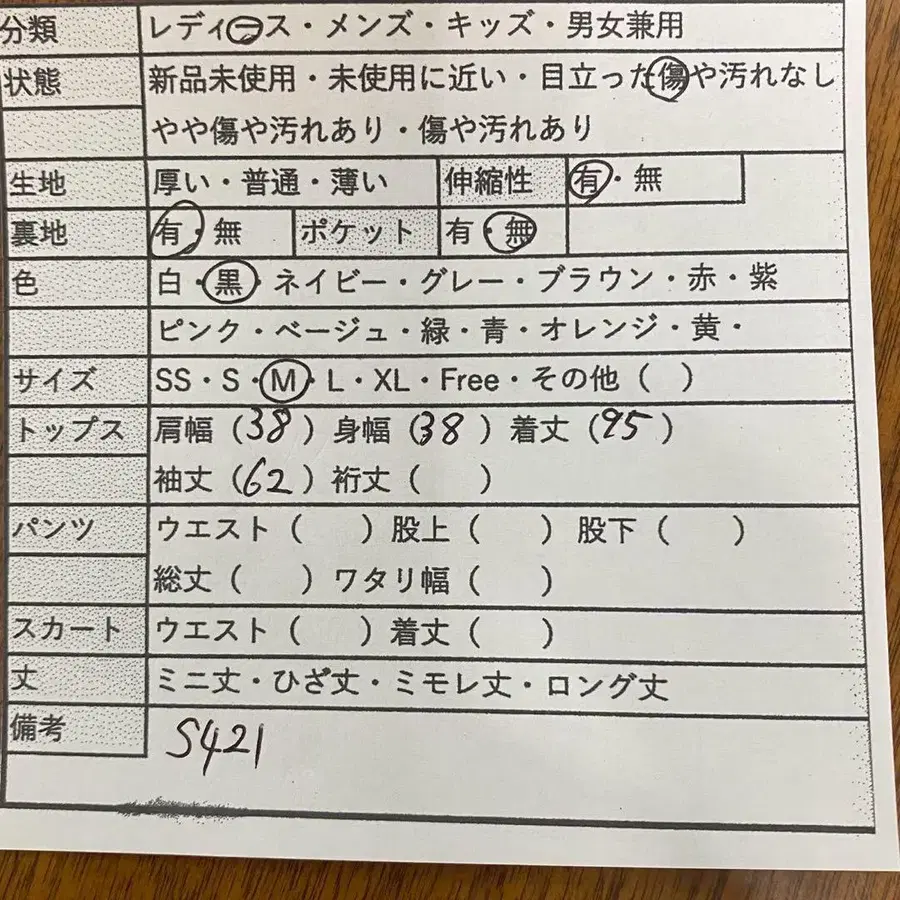 分類 レディース・メンズ・キッズ・男女兼用
状態 新品未使用・未使用に近い・目立った傷や汚れなし
やや傷や汚れあり・傷や汚れあり
生地 厚い・普通・薄い 伸縮性 有・無
裏地 有・無 ポケット 有・無
色 白・黒・ネイビー・グレー・ブラウン・赤・紫
ピンク・ベージュ・緑・青・オレンジ・黄・
サイズ SS・S・M・L・XL・Free・その他（ ）
トップス 肩幅（38）身幅（38）着丈（95）
袖丈（62）裄丈（ ）
パンツ ウエスト（ ）股上（ ）股下（ ）
総丈（ ）ワタリ幅（ ）
スカート ウエスト（ ）着丈（ ）
丈 ミニ丈・ひざ丈・ミモレ丈・ロング丈
備考 S421